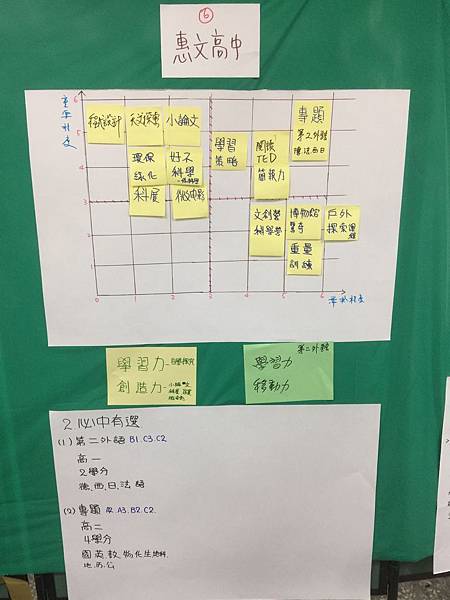 6
惠文高中
6
5
4
3
2
1
0
1
2
3
4
5
6
程式設計
天文探索
小論文
環保
綠化
科展
好不
科學
微電影
學習
策略
閱讀
TED
簡報力
專題
第二外語
德法西日
文創營
科學營
博物館
驚奇
戶外
探索課程
重量
訓練
學習力-自學探究
創造力-小論文
第二外語
學習力
移動力
2.心中有選
(1)第二外語 B1.C3.C2
高一
2學分
德、西、日、法語
(2)專題 A2.A3.B2.C2.
高二
4學分
國英數、物化生地科、
地、歷、公